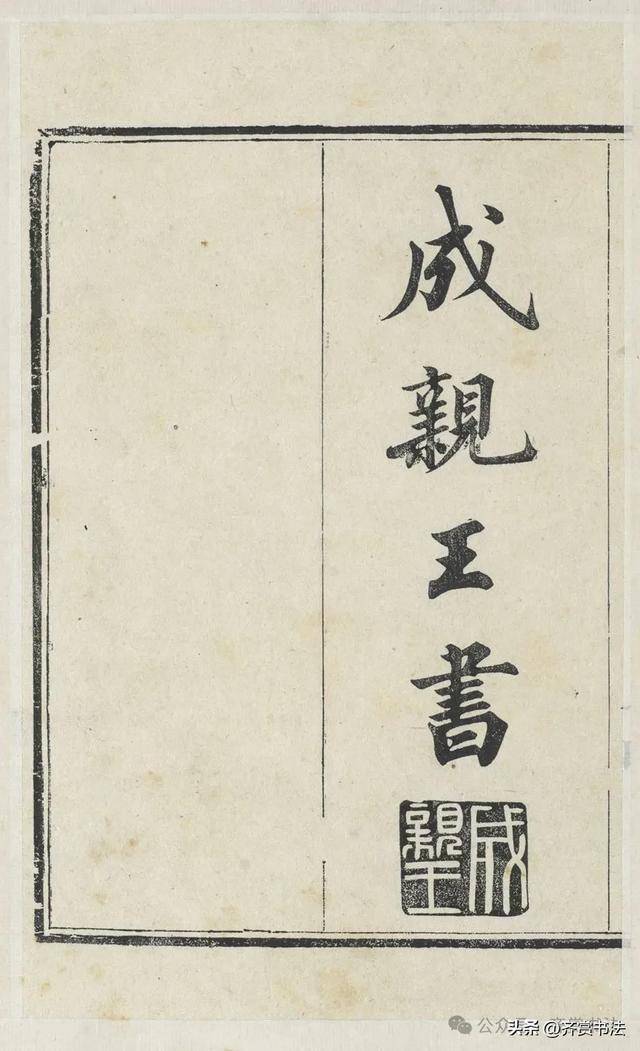 成親王書
成親王
头条 @齐赏书法
公众号